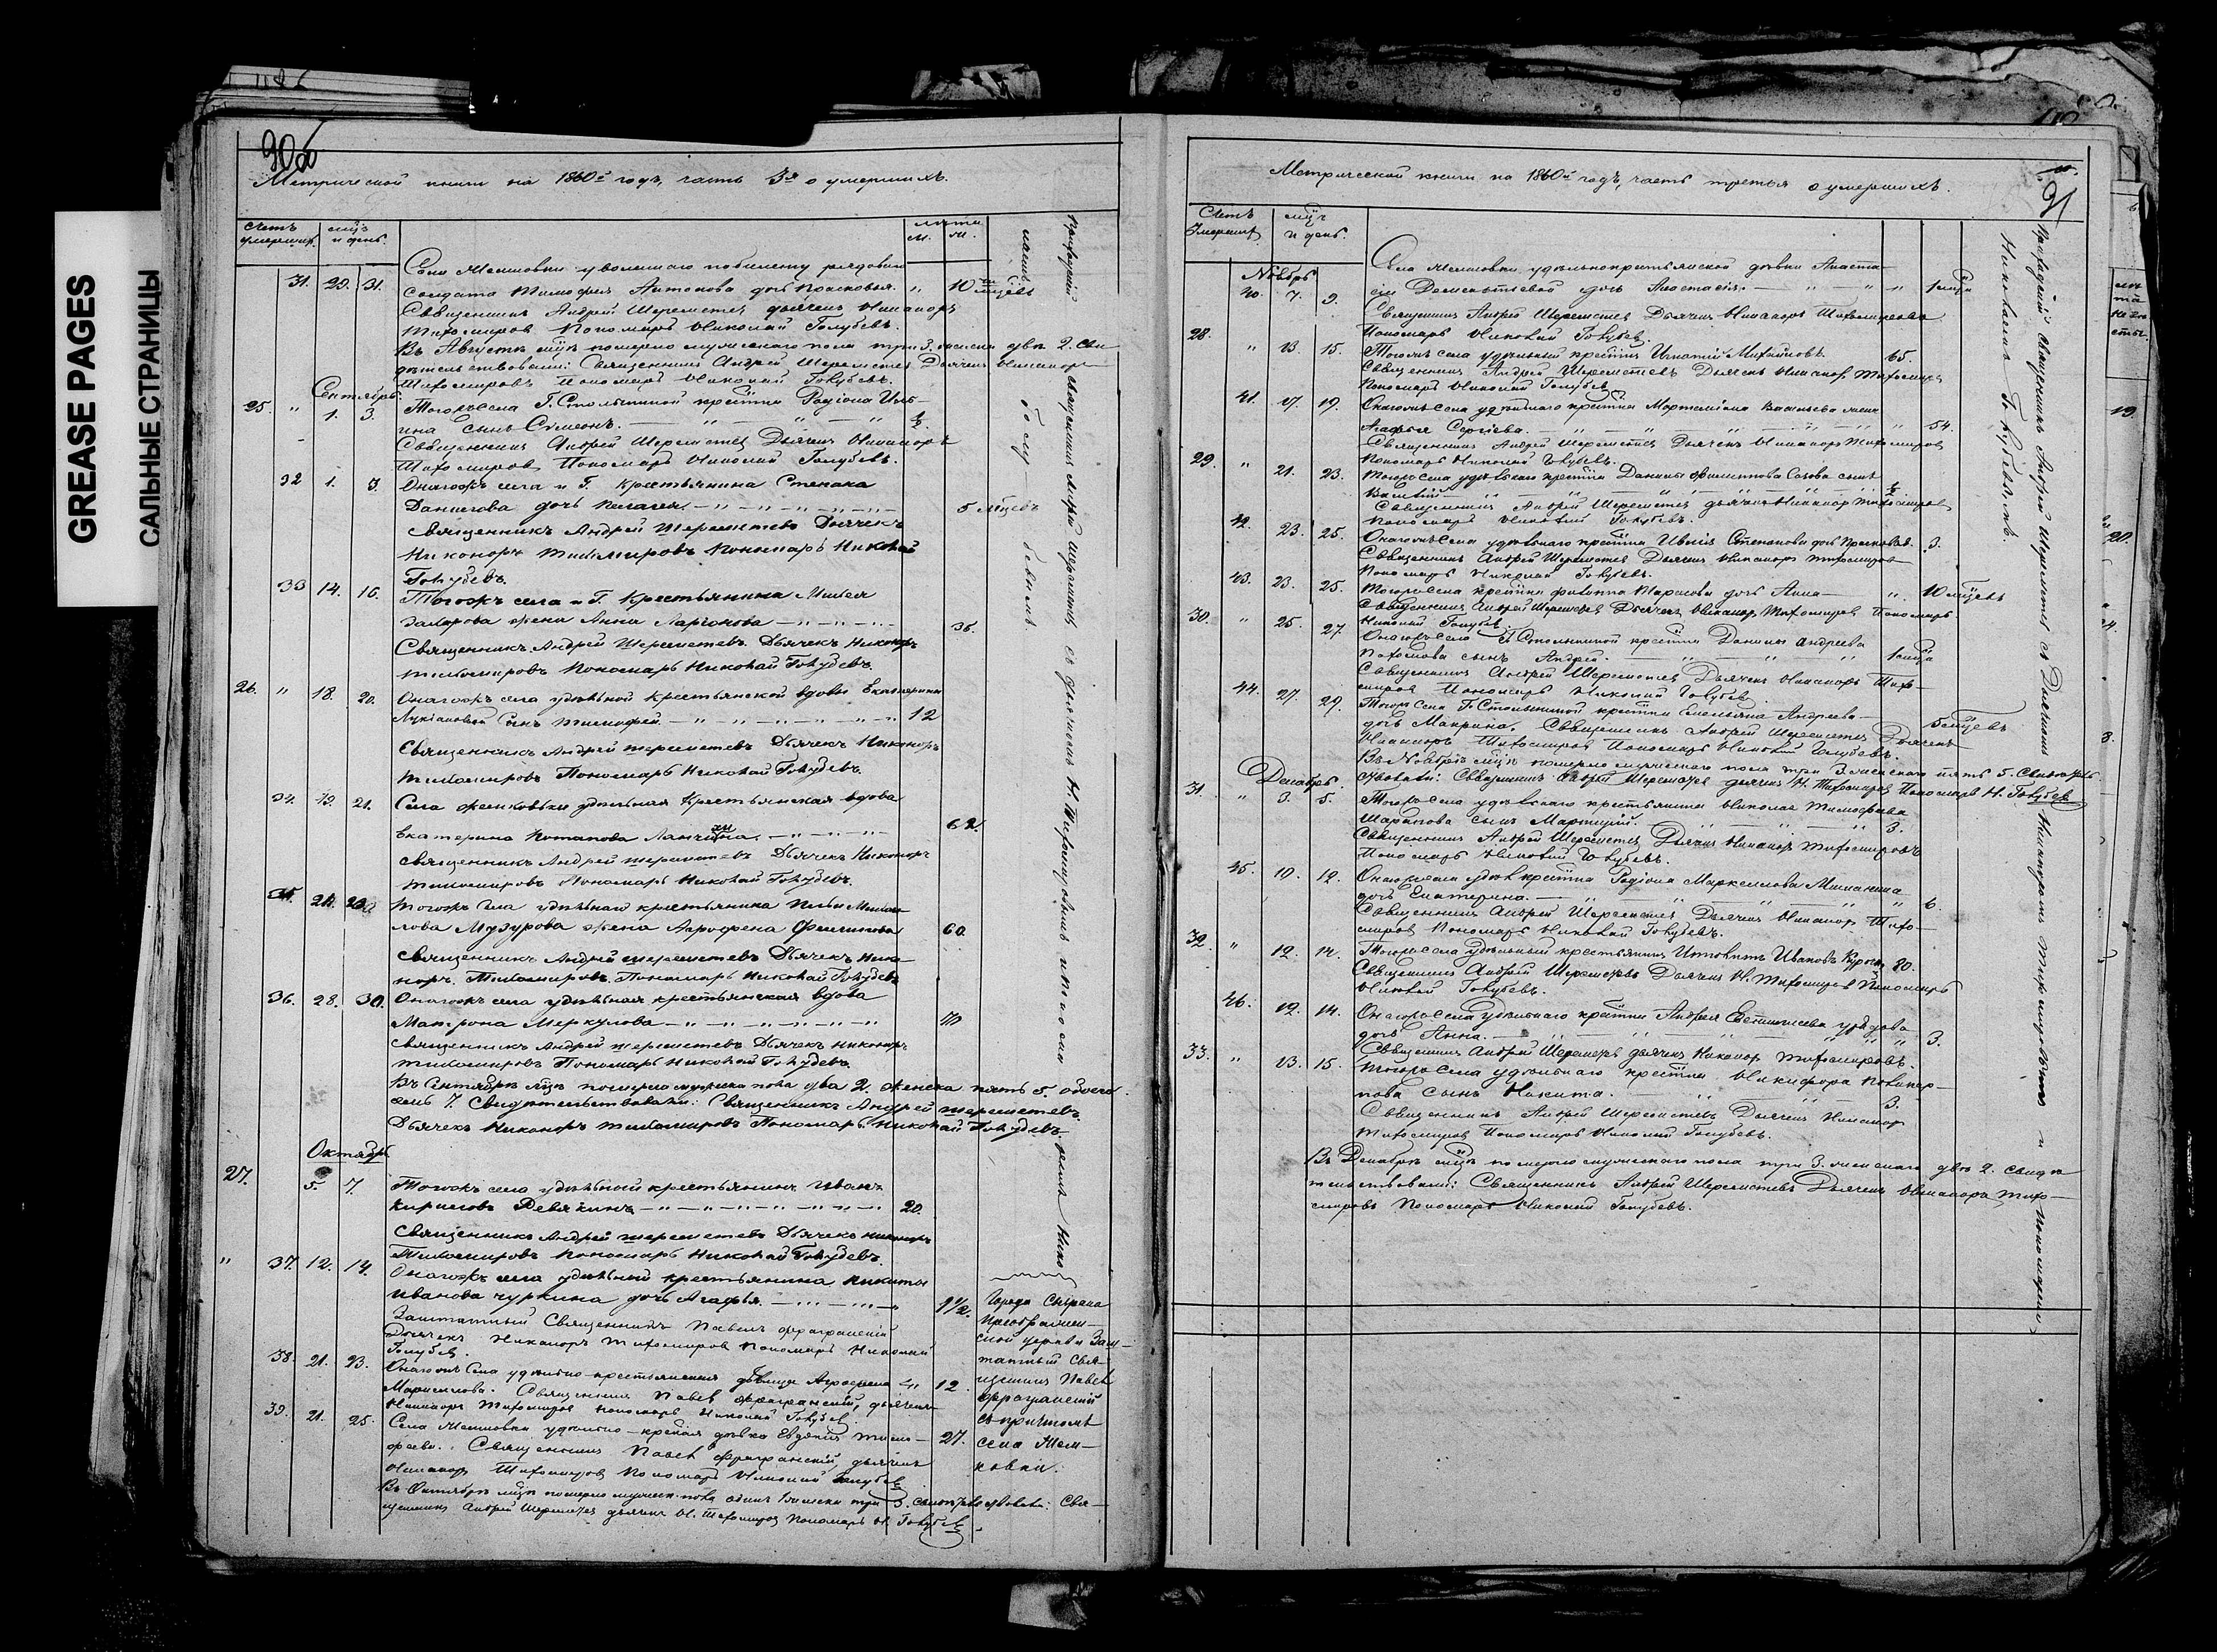 GREASE PAGES
САЛЬНЫЕ СТРАНИЦЫ
90об
Метрической книги на 1860й годъ, часть 3я о умершихъ.
Счетъ умершихъ. мцъ и день. лѣта
м. ж.
31. 29. 31. уволеннаго по билету рядоваго
солдата Тимофея Антонова дочь Прасковья. " 10 мцевъ
Священникъ Андрей Шереметевъ дьячекъ Никаноръ
Тихомировъ Пономарь Николай Голубевъ.
Въ Августѣ мцѣ померло мужескаго пола три 3. женска два 2. Сви-
дѣтельствовали: Священникъ Андрей Шереметевъ Дьячекъ Никаноръ
Тихомировъ Пономарь Николай Голубевъ.
Сентябрь.
25. " 1. 3. Тогожъ села Г. Столыпиной крестьянина Родіона
сынъ Симеонъ.
Священникъ Андрей Шереметевъ Дьячекъ Никаноръ
Тихомировъ Пономарь Николай Голубевъ.
32 1. 3. Онагожъ села и Г. крестьянина Степана
Данилова дочь Пелагея. 5 мцевъ
Священникъ Андрей Шереметевъ Дьячекъ
Никоноръ Тихомировъ Пономарь Николай
Голубевъ.
33 14. 16. Тогожъ села и Г. Крестьянина
Захарова жена Анна Ларіонова 36.
Священникъ Андрей Шереметевъ Дьячекъ Никоноръ
Тихомировъ Пономарь Николай Голубевъ.
26. " 18. 20. Онагожъ села удѣльной крестьянской вдовы Екатерины
Лукіановой сынъ Тимофей 12
Священникъ Андрей Шереметевъ Дьячекъ Никоноръ
Тихомировъ Пономарь Николай Голубевъ.
34. 19. 21. Села удѣльная Крестьянская вдова
Екатерина Потапова 62.
Священникъ Андрей Шереметевъ Дьячекъ Никоноръ
Тихомировъ Пономарь Николай Голубевъ.
35. Тогожъ села удѣльнаго крестьянина
Музурова жена Агрофена Филипова 60.
Священникъ Андрей Шереметевъ Дьячекъ Нико-
норъ Тихомировъ Пономарь Николай Голубевъ
36. 28. 30. Онагожъ села удѣльная крестьянская вдова
Матрона Меркулова 70
Священникъ Андрей Шереметевъ Дьячекъ Никоноръ
Тихомировъ Пономарь Николай Голубевъ.
Въ Сентябрѣ мцѣ померло мужска пола два 2. женска пять 5. обоего
семь 7. Свидѣтельствовали: Священникъ Андрей Шереметевъ
Дьячекъ Никоноръ Тихомировъ Пономарь Николай Голубевъ.
Октябрь
27. 5. 7. Тогожъ села удѣльный крестьянинъ Иванъ
Кириловъ Девякинъ 20.
Священникъ Андрей Шереметевъ Дьячекъ Никоноръ
Тихомировъ Пономарь Николай Голубевъ.
" 37. 12. 14. Онагожъ села удѣльный крестьянина Никиты
Иванова Чуркина дочь Агафья. 1 1/2.
Заштатный Священникъ Павелъ
Дьячекъ Никаноръ Тихомировъ Пономарь Николай
Голубев.
38. 21. 23. Онагожъ Села удѣльно-крестьянская дѣвица Агрофена " 12.
Священникъ Павел дьячекъ
Никаноръ Тихомировъ пономарь Николай Голубев.
39. 21. 25. Села удѣльно-крестьян дѣвка Евдокия 27.
Священникъ Павел дьячекъ
Никаноръ Тихомировъ Пономарь Николай Голубев
Въ Октябрѣ мцѣ померло мужеск. пола одинъ 1 женска три 3. свидѣтельствовали: Свя-
щенникъ Андрей Шереметев дьячекъ Н. Тихомиров Пономарь Н. Голубев.
Приходскій священникъ Андрей Шереметевъ съ дьячкомъ Н. Тихомировымъ и пономаремъ Нико-
лаемъ Голубевымъ.
Города
Преображен-
ской церкви Заш-
татный Свя-
щенникъ Павел
съ причтомъ
села
91
Метрической книги на 1860й годъ, часть третья о умершихъ.
Счетъ Умершихъ мцъ и день.
Ноябрь
40. 7. 9. Села удѣльнокрестьянской дѣвки Анаста-
сіи Дементьевой дочь Анастасія. 1 мцъ
Священникъ Андрей Шереметевъ Дьячекъ Никаноръ Тихомировъ
Пономарь Николай Голубев.
28. " 13. 15. Тогожъ села удѣльный крестьян Игнатій Михайловъ. 65.
Священникъ Андрей Шереметевъ Дьячекъ Никанор. Тихомировъ
Пономарь Николай Голубев
41. 17. 19. Онагожъ села удѣльнаго крестьян Васильева жена
Агафья Сергіева. 54.
Священникъ Андрей Шереметев Дьячекъ Никаноръ Тихомиров
Пономарь Николай Голубев.
29. " 21. 23. Тогожъ села удѣльнаго крестьян Данилы Филиппова сынъ
Василій
Священникъ Андрей Шереметев дьячекъ Никанор Тихомиров
Пономарь Николай Голубевъ.
42. 23. 25. Онагожъ села удѣльнаго крестьян Степанова дочь Прасковья. 3.
Священникъ Андрей Шереметев Дьячекъ Никаноръ Тихомиров
Пономарь Николай Голубевъ.
43. 23. 25. Тогожъ села крестьян Филиппа дочь Анна " 10 мцевъ
Священникъ Андрей Шереметев Дьячекъ Никанор. Тихомиров Пономарь
Николай Голубев.
30. " 25. 27. Онагожъ села Г. Столыпиной крестьян Данилы Андреева
сынъ Андрей. 1 мцъ
Священникъ Андрей Шереметев Дьячекъ Никаноръ Тихо-
миров Пономарь Николай Голубев.
44. 27. 29. Тогожъ Села Г. Столыпиной крестьян Емельяна Андреева
дочь Макрина. 5 мцевъ Священникъ Андрей Шереметев Дьячекъ
Никаноръ Тихомиров Пономарь Николай Голубевъ.
Въ Ноябрѣ мцѣ померло мужескаго пола три 3 женскаго пять 5. Свидѣтель-
ствовали: Священникъ Андрей Шереметев дьячекъ Н. Тихомиров Пономарь Н. Голубев
Декабрь.
31. " 3. 5. Тогожъ села удѣльнаго крестьянина Николая Тимофеева
Шарапова сынъ 3.
Священникъ Андрей Шереметев Дьячекъ Никанор Тихомировъ
Пономарь Николай Голубевъ.
45. 10. 12. Онагожъ села удѣл крестьян Родіона Маркеллова
дочь Екатерина. 6.
Священникъ Андрей Шереметев Дьячекъ Никанор Тихо-
миров Пономарь Николай Голубевъ.
32. " 12. 14. Тогожъ села Удѣльный крестьянинъ Ивановъ 80.
Священникъ Андрей Шереметевъ Дьячекъ Н. Тихомиров Пономарь
Николай Голубевъ.
46. 12. 14. Онагожъ села Удѣльнаго крестьян Андрея
дочь Анна. 3.
Священникъ Андрей Шереметев дьячекъ Никанор Тихомировъ.
33. " 13. 15. Тогожъ села удѣльнаго крестьян Никифора
сынъ Никита. 3.
Священникъ Андрей Шереметев Дьячекъ Никанор
Тихомиров Пономарь Николай Голубевъ.
Въ Декабрѣ мцѣ померло мужескаго пола три 3. женскаго двѣ 2. Свидѣ-
тельствовали: Священникъ Андрей Шереметевъ Дьячекъ Никаноръ Тихо-
мировъ Пономарь Николай Голубевъ.
Приходскій священникъ Андрей Шереметев съ Дьячкомъ Никаноромъ Тихомировымъ и пономаремъ
Николаемъ Голубевымъ.